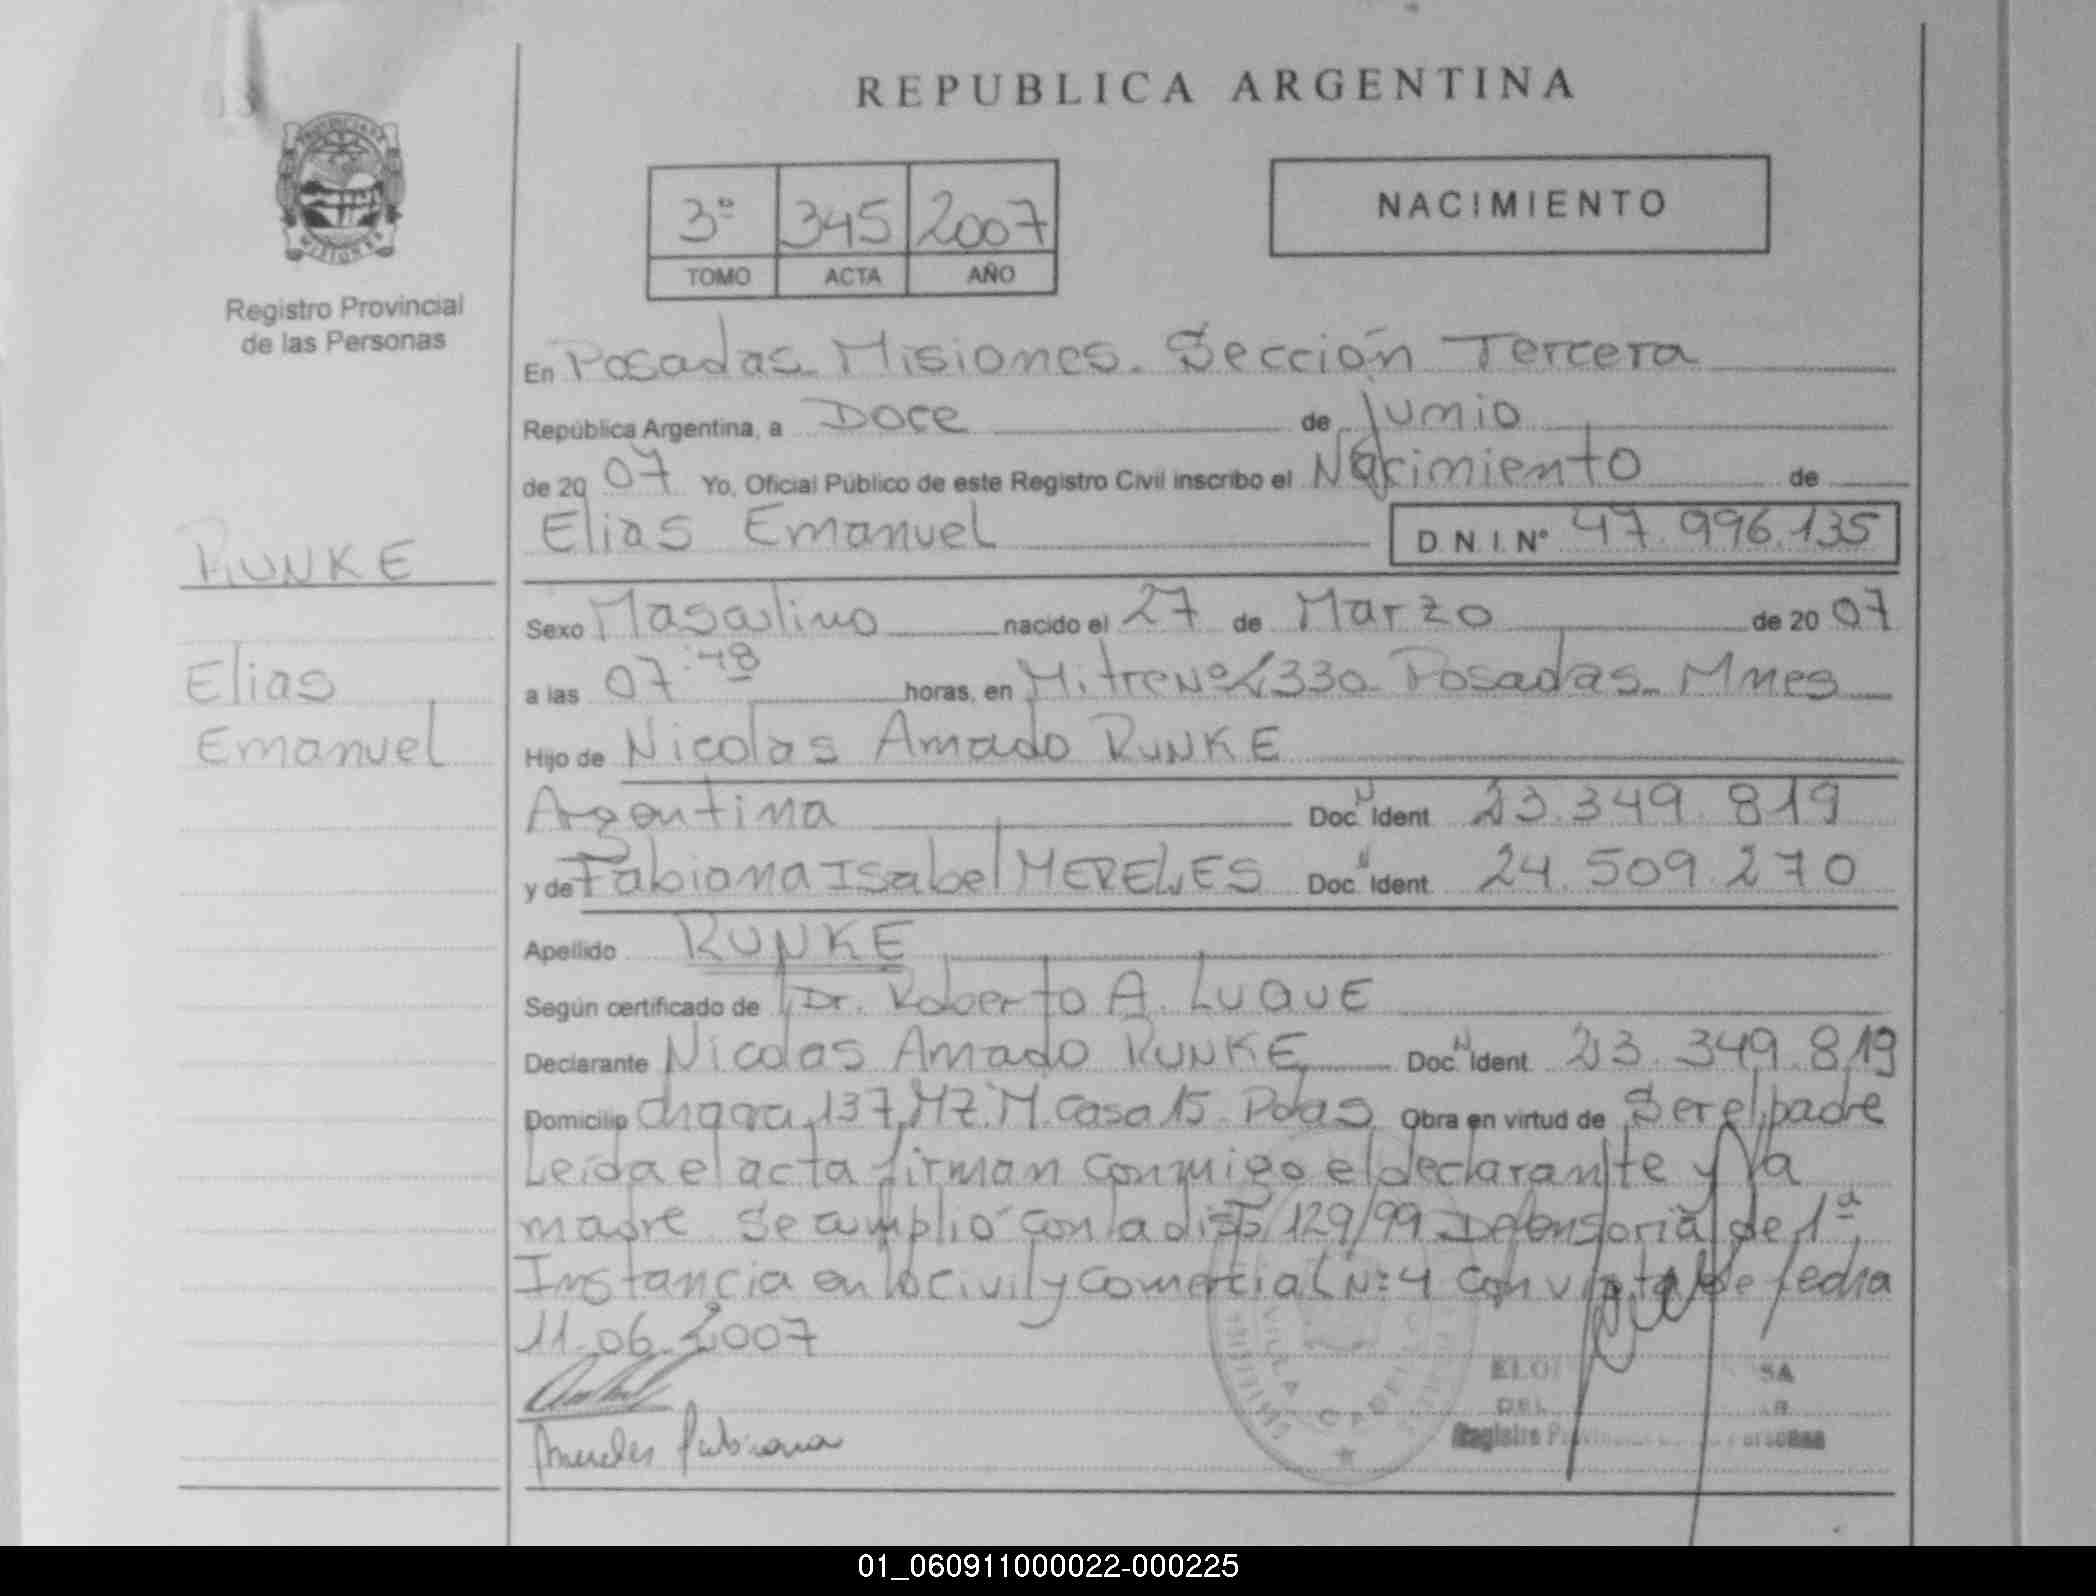 REPUBLICA ARGENTINA
PROVINCIA DE
MISIONES
Registro Provincial
de las Personas
3ª 345 2007
TOMO ACTA AÑO
NACIMIENTO
En Posadas. Misiones. Sección Tercera
República Argentina, a Doce de Junio
de 2007 Yo, Oficial Público de este Registro Civil inscribo el Nacimiento de
Elias Emanuel D.N.I. Nº 47.996.135
RUNKE
Sexo Masculino nacido el 27 de Marzo de 2007
Elias
a las 07:48 horas, en Mitre Nº 2330 Posadas. Mnes
Emanuel
Hijo de Nicolas Amado RUNKE
Argentina Doc. N Ident 23.349.819
y de Fabiana Isabel MERELES Doc. N Ident 24.509.270
Apellido RUNKE
Según certificado de Dr. Roberto A. LUQUE
Declarante Nicolas Amado RUNKE Doc. N Ident 23.349.819
Domicilio chacra 137, MZ. M. Casa 15. Pdas Obra en virtud de Ser el padre
Leída el acta firman conmigo el declarante y la
madre. Se amplió con la disp 129/99 Defensoria de 1ª
Instancia en lo Civil y Comercial Nº 4 con vista de fecha
11.06.2007
Mereles Fabiana
VILLA CABELLO
Registro Provincial de las Personas
01_060911000022-000225